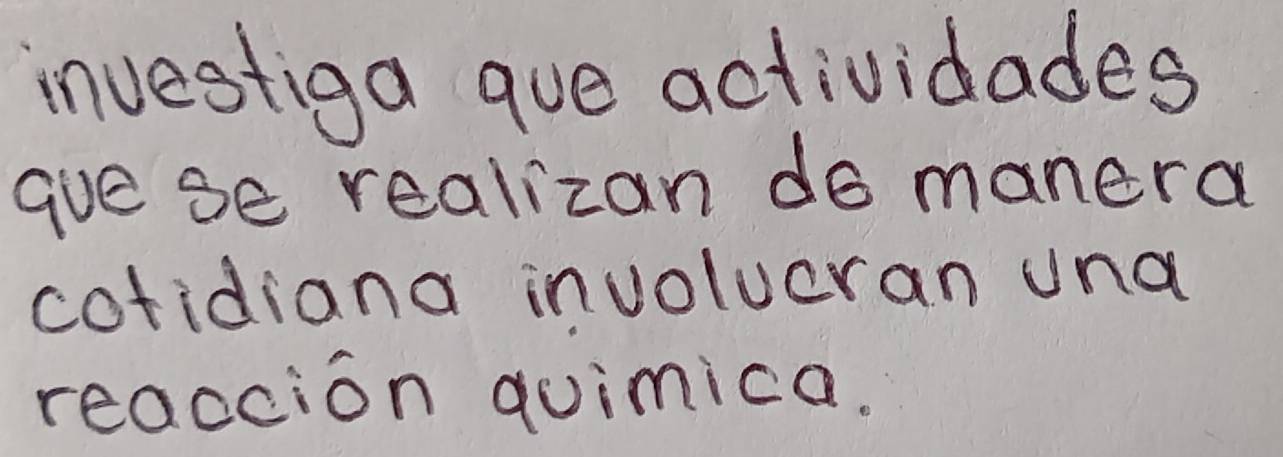 investiga que actividades
que se realizan de manera
cotidiana involucran una
reacción quimica.